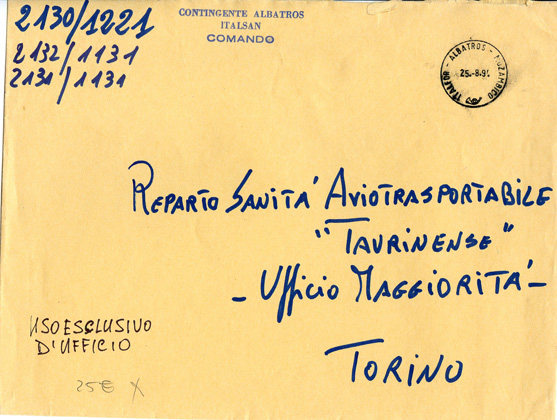 2130/1221
2132/1131
2131/1131
CONTINGENTE ALBATROS
ITALSAN
COMANDO
ITALFOR - ALBATROS - MOZAMBICO
REPARTO SANITA' AVIOTRASPORTABILE
"TAURINENSE"
- UFFICIO MAGGIORITA' -
TORINO
USO ESCLUSIVO
D'UFFICIO
25€ X